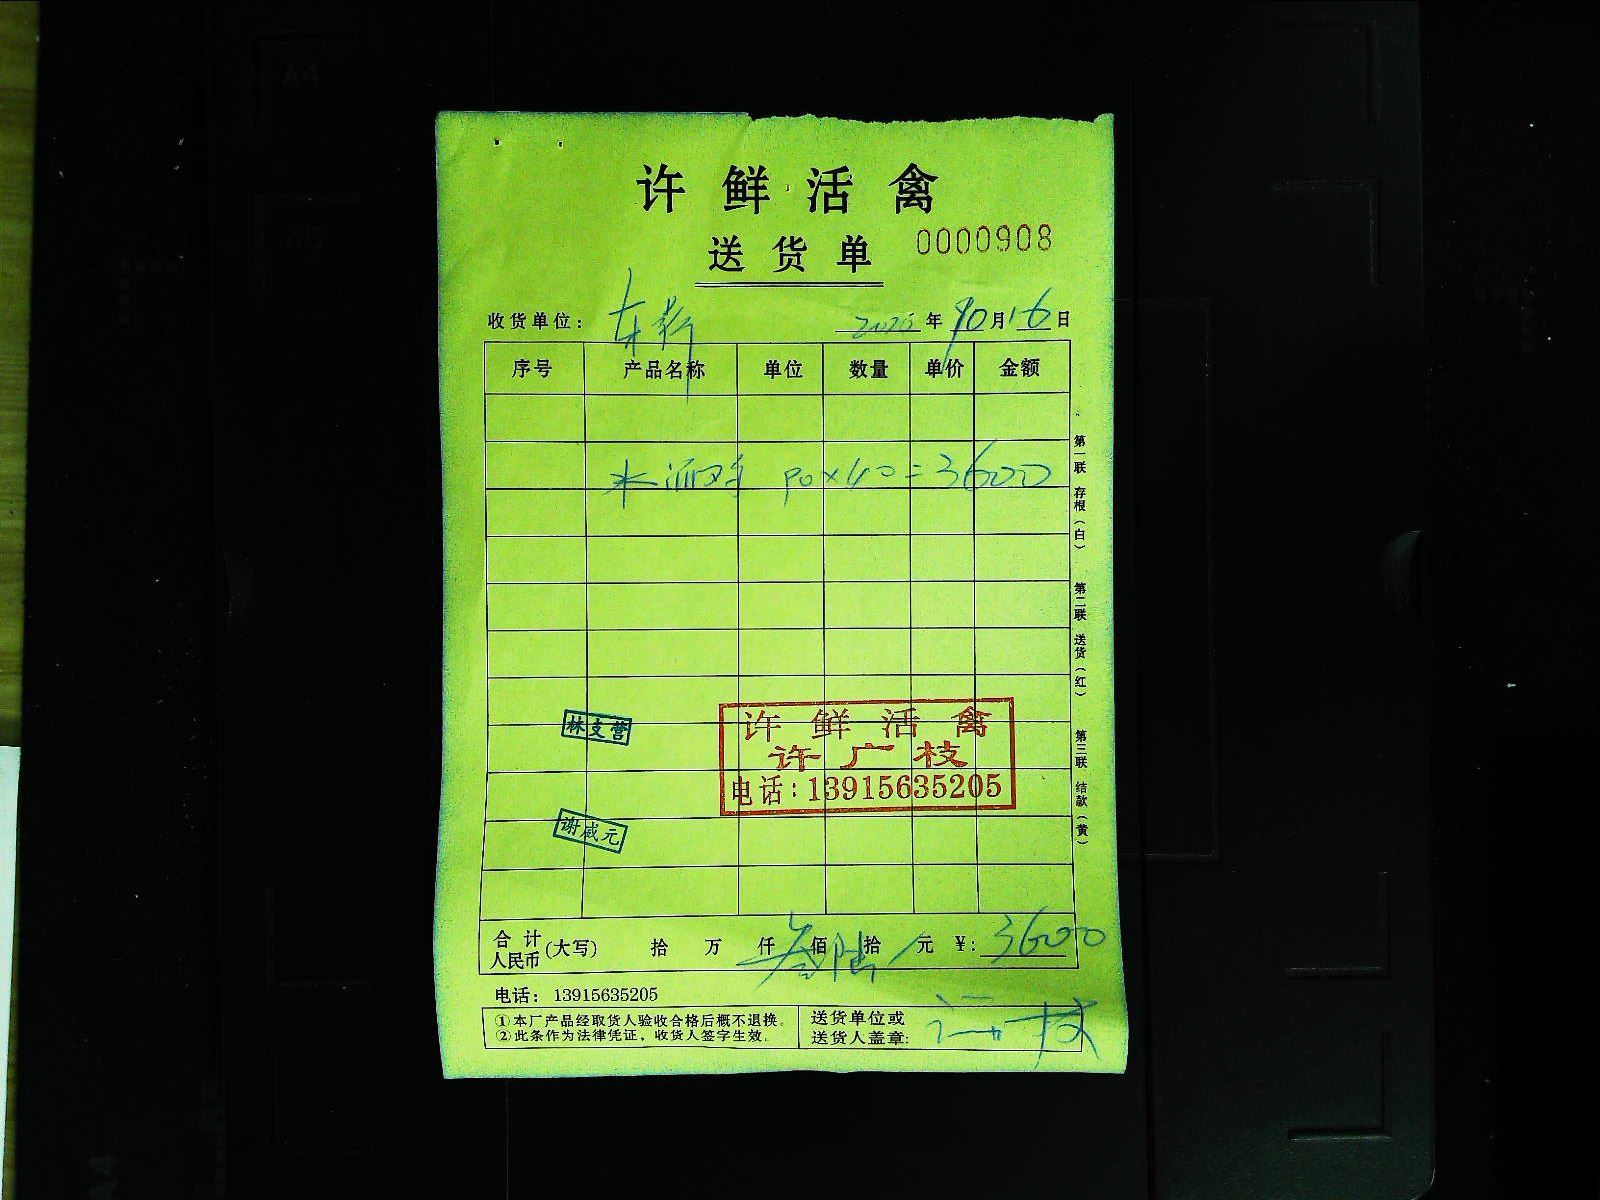 许鲜活禽
送货单 0000908
收货单位： 东新 年10月16日
序号 产品名称 单位 数量 单价 金额
90×40=3600
林支营
许鲜活禽
许广枝
电话：13915635205
谢威元
合计人民币（大写） 拾 万 仟 叁 佰 陆 拾 元 ¥：3600
电话：13915635205
①本厂产品经取货人验收合格后概不退换。
②此条作为法律凭证，收货人签字生效。
送货单位或
送货人盖章：
第一联 存根（白） 第二联 送货（红） 第三联 结款（黄）
A4
A5
A4